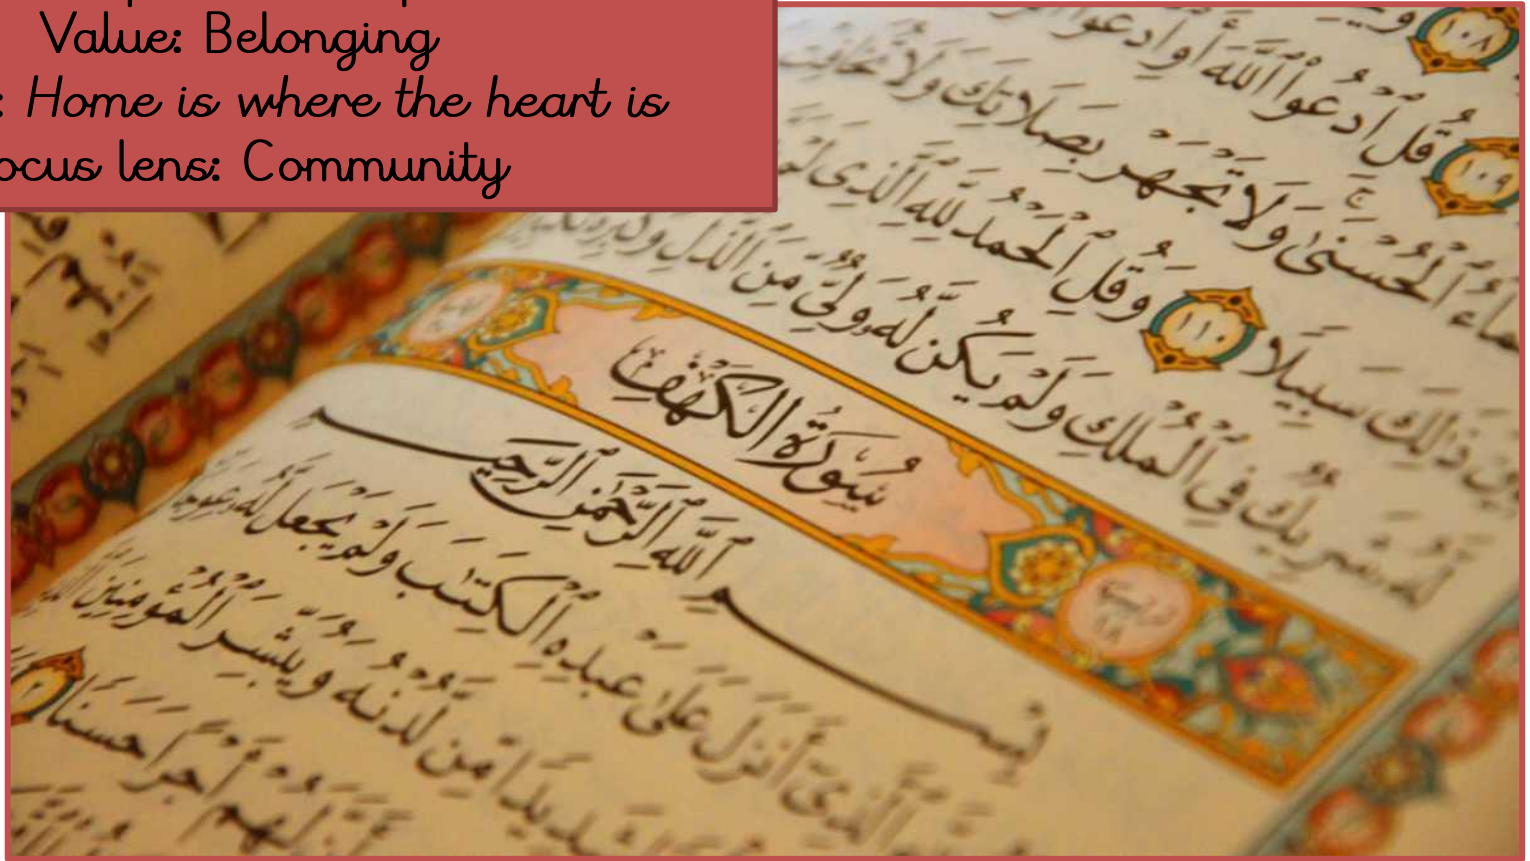 Value: Belonging
: Home is where the heart is
ocus lens: Community
١٠٨
قُلِ ٱدْعُوا۟ ٱللَّهَ أَوِ ٱدْعُوا۟ ١٠٩
ٱلْحُسْنَىٰ وَلَا تَجْهَرْ بِصَلَاتِكَ وَلَا تُخَافِتْ
ذَٰلِكَ سَبِيلًا ١١٠ وَقُلِ ٱلْحَمْدُ لِلَّهِ ٱلَّذِى
لَّهُۥ شَرِيكٌ فِى ٱلْمُلْكِ وَلَمْ يَكُن لَّهُۥ وَلِىٌّ مِّنَ ٱلذُّلِّ وَكَبِّرْهُ
سُورَةُ الْكَهْفِ
بِسْمِ ٱللَّهِ ٱلرَّحْمَٰنِ ٱلرَّحِيمِ
ٱلَّذِىٓ أَنزَلَ عَلَىٰ عَبْدِهِ ٱلْكِتَٰبَ وَلَمْ يَجْعَل لَّهُۥ عِوَجَا
شَدِيدًا مِّن لَّدُنْهُ وَيُبَشِّرَ ٱلْمُؤْمِنِينَ
لَهُمْ أَجْرًا حَسَنًا ٢